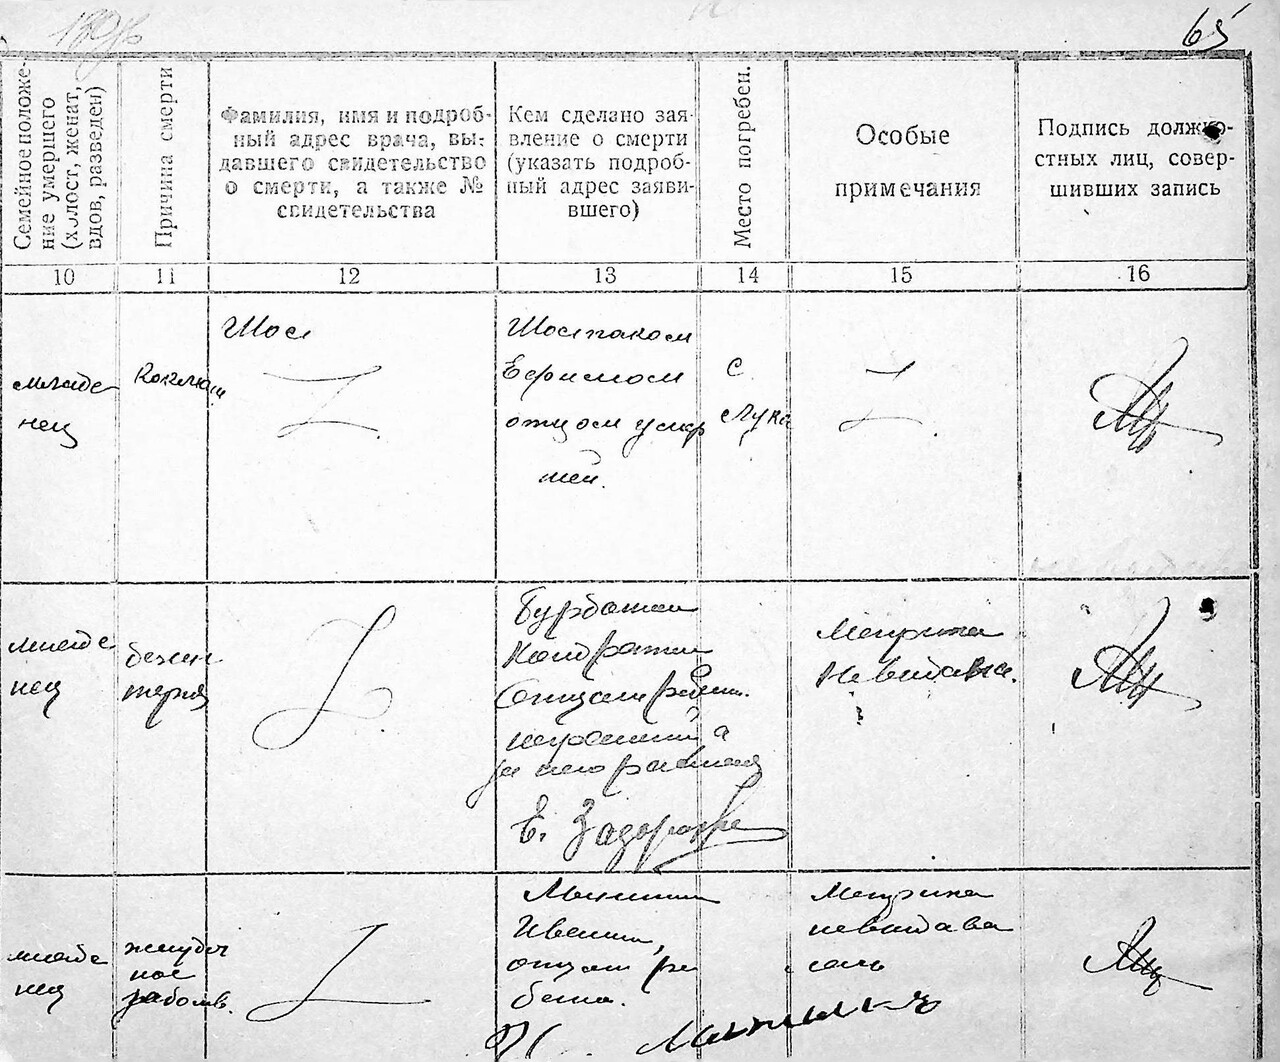 65
Семейное положе-
ние умершего
(холост, женат,
вдов, разведен)
Причина смерти
Фамилия, имя и подроб-
ный адрес врача, вы-
давшего свидетельство
о смерти, а также №
свидетельства
Кем сделано зая-
вление о смерти
(указать подроб-
ный адрес заяви-
вшего)
Место погребен.
Особые
примечания
Подпись долж
стных лиц, совер-
шивших запись
10 11 12 13 14 15 16
младе
нец
коклюш
Шос
Шостаком
Ефимом
отцом умер
шей.
с
Лука
младе
нец
дезен
терия
Кондратом
Отцом
неграмотный а
за него
Е.
Метрика
Не выдава
младе
нец
желудоч
ное
заболев.
Иваном,
отцом ре
бенка.
Метрика
невыдава
лась